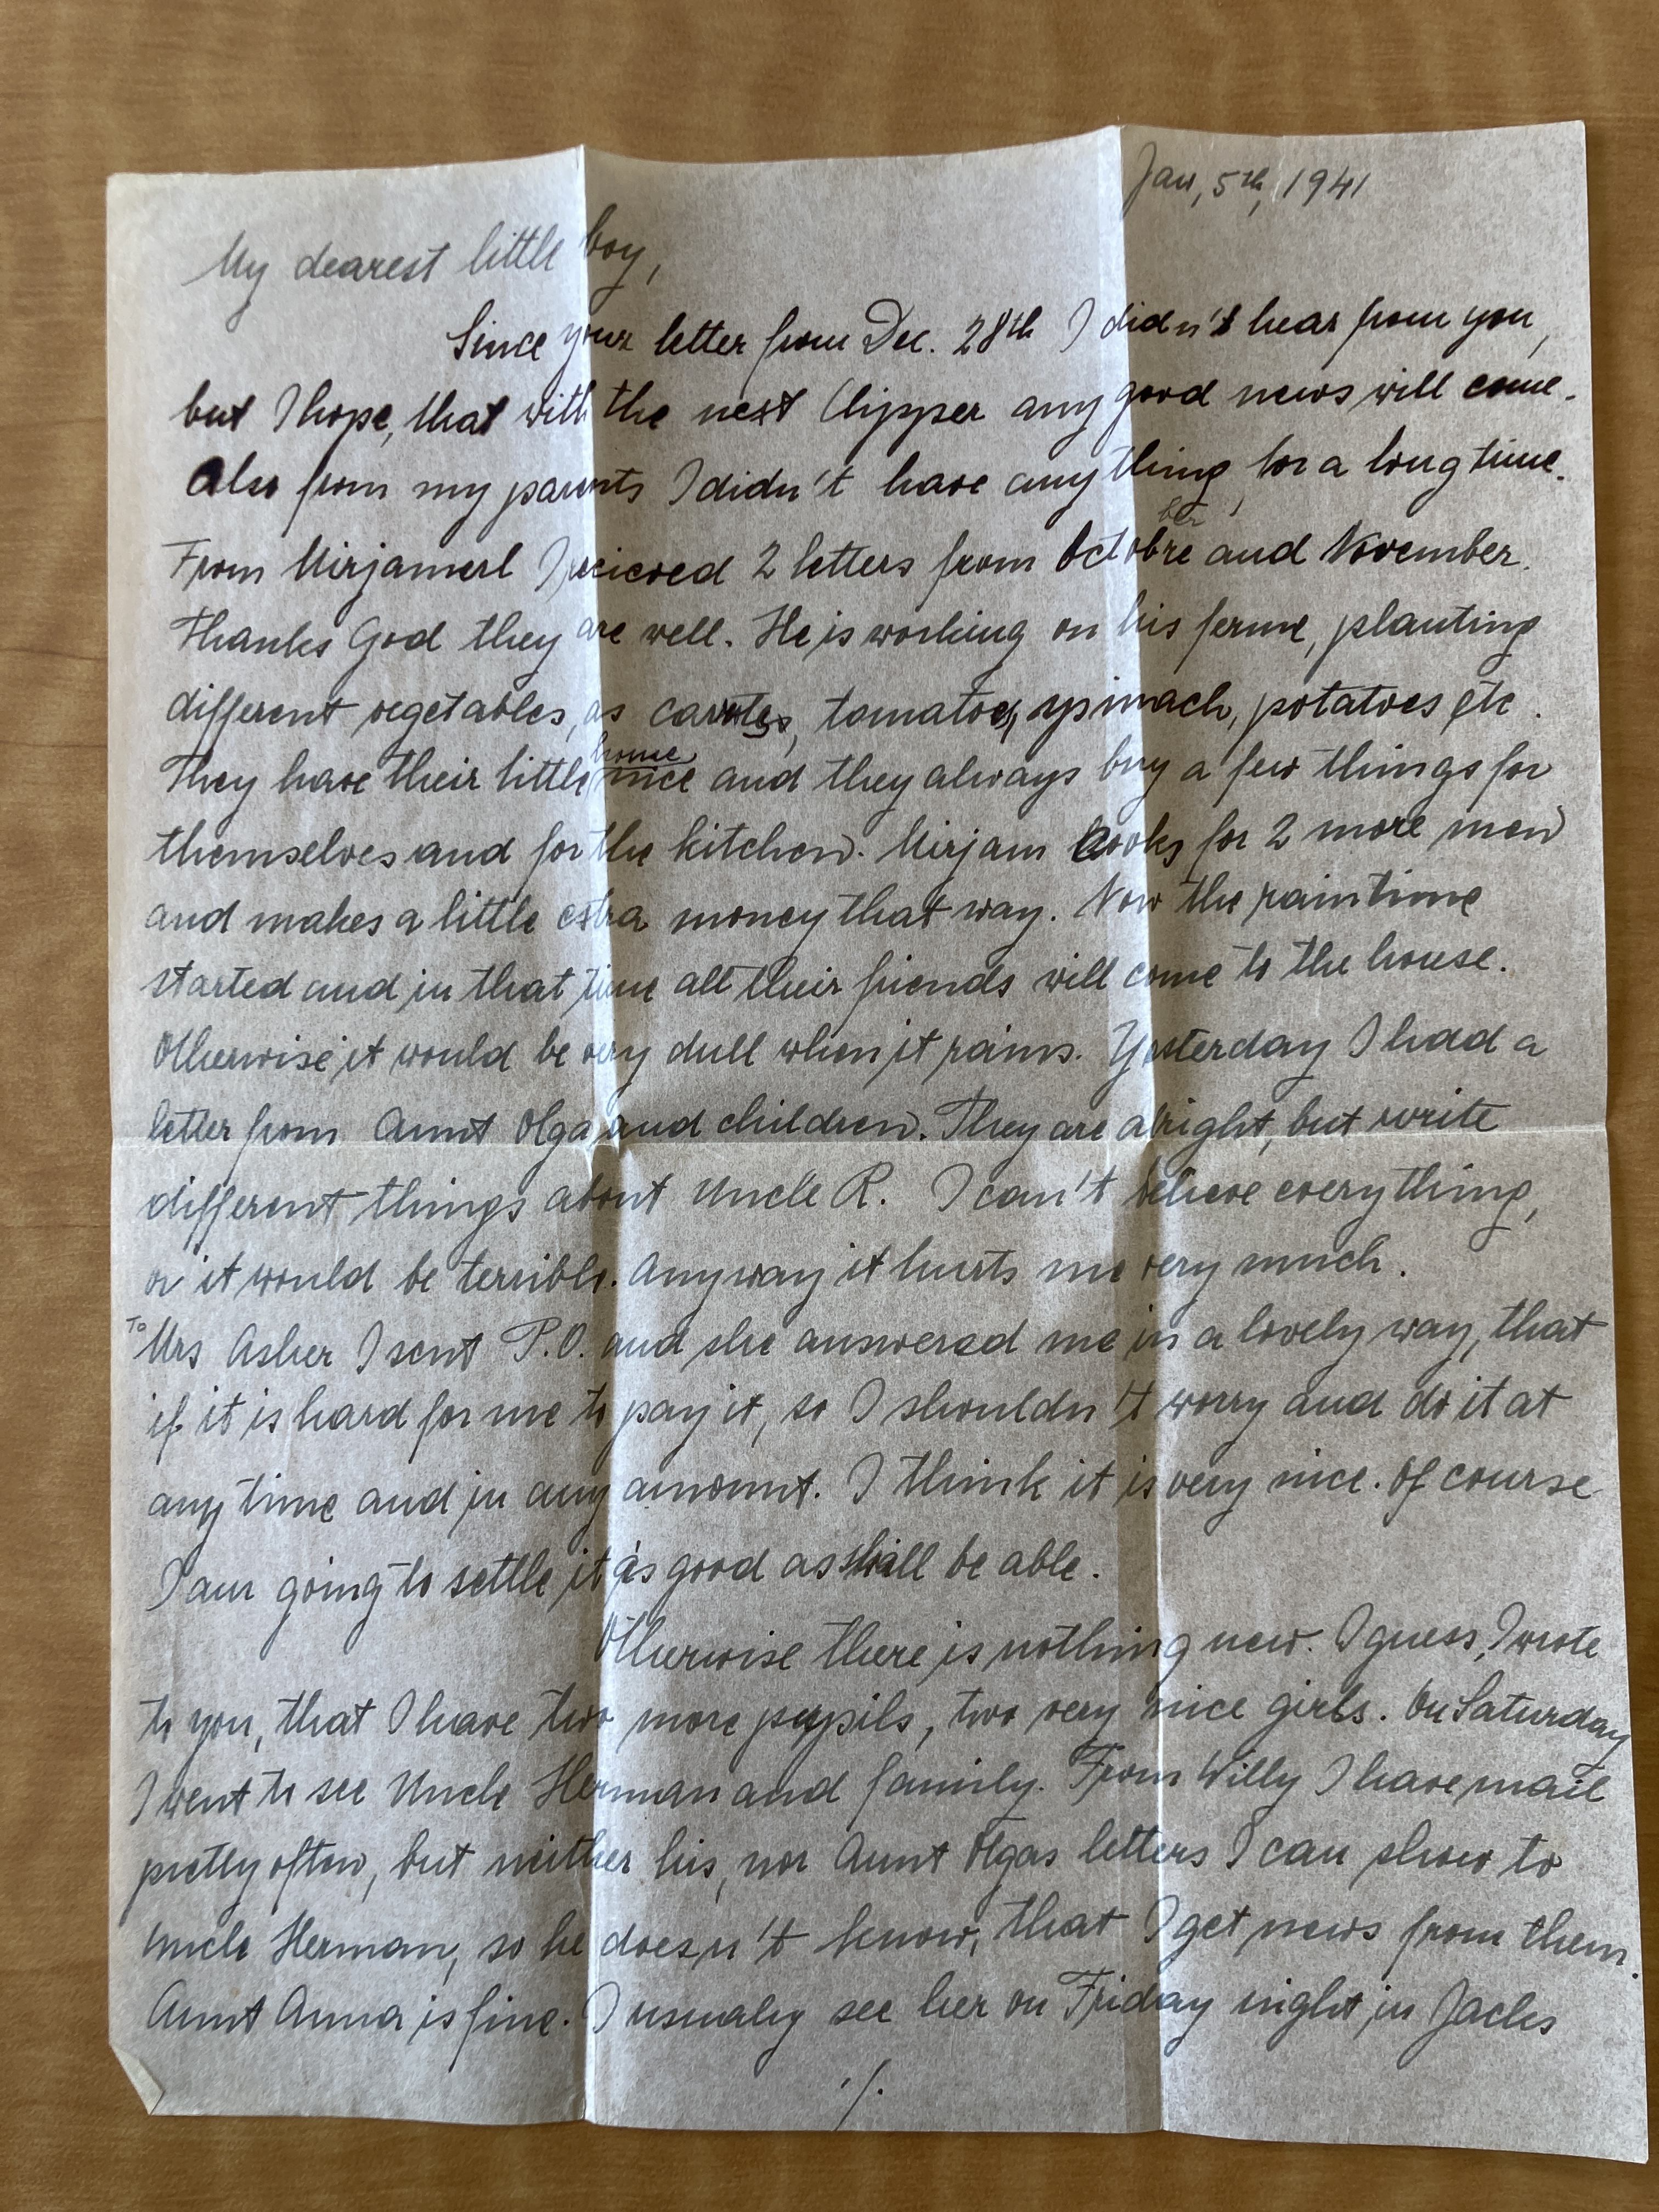 Jan, 5th, 1941
My dearest little boy,
Since your letter from Dec. 28th I didn't hear from you,
but I hope, that with the next Clipper any good news will come.
Also from my parents I didn't have anything for a long time.
ber
From Mirjamerl I recieved 2 letters from Octobre and November.
Thanks God they are well. He is working on his ferme, planting
different vegetables, as carotes, tomatoes, spinach, potatoes etc.
home
They have their little nice and they always buy a few things for
themselves and for the kitchen. Mirjam cooks for 2 more men
and makes a little extra money that way. Now the raintime
started and in that time all their friends will come to the house.
Otherwise it would be very dull when it rains. Yesterday I had a
letter from Aunt Olga and children. They are alright, but write
different things about Uncle R. I can't believe everything,
or it would be terrible. Anyway it hurts me very much.
To Mrs Asher I sent P.O. and she answered me in a lovely way, that
if it is hard for me to pay it, so I shouldn't worry and do it at
any time and in any amount. I think it is very nice. Of course
I am going to settle it as good as shall be able.
Otherwise there is nothing new. I guess, I wrote
to you, that I have two more pupils, two very nice girls. On Saturday
I went to see Uncle Herman and family. From Willy I have mail
pretty often, but neither his, nor Aunt Olgas letters I can show to
Uncle Herman, so he doesn't know, that I get news from them.
Aunt Anna is fine. I usualy see her on Friday night, in Jacks
./.